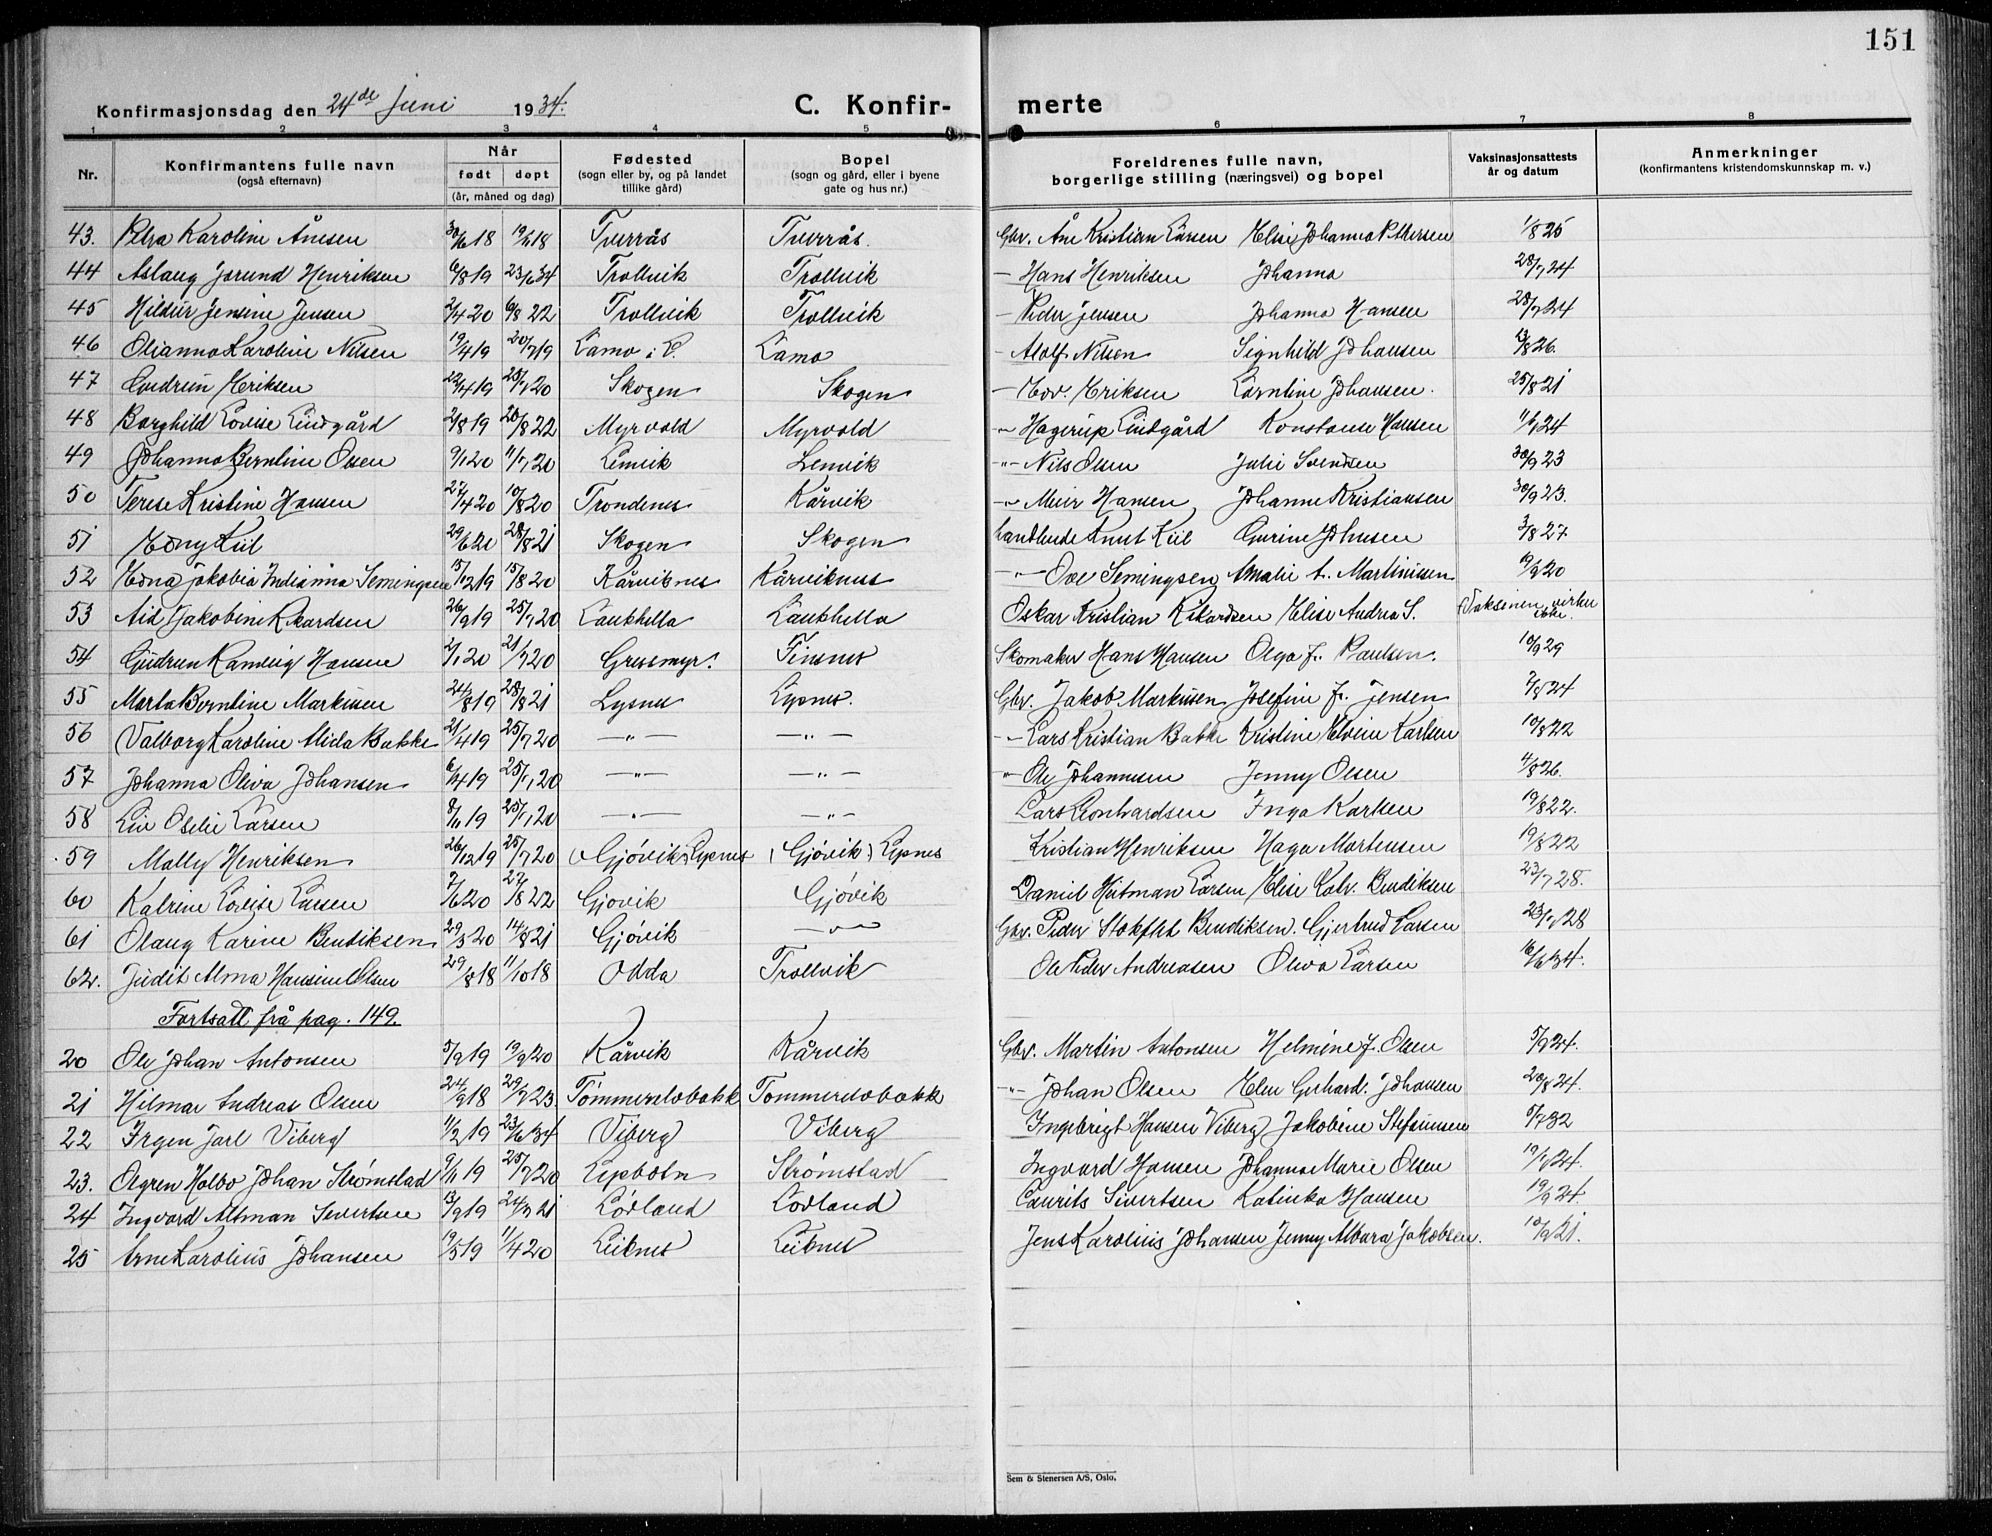 151
Konfirmasjonsdag den 24de Juni 1934. C. Konfir- merte
1 2 3 4 5 6 7 8
Nr. Konfirmantens fulle navn (også efternavn) Når født døpt (år, måned og dag) Fødested (sogn eller by, og på landet tillike gård) Bopel (sogn og gård, eller i byene gate og hus nr.) Foreldrenes fulle navn, borgerlige stilling (næringsvei) og bopel Vaksinasjonsattests år og datum Anmerkninger (konfirmantens kristendomskunnskap m. v.)
43. Petra Karoline Ånesen 18 18 Tverrås Tverrås. Gbr. Åne Kristian Larsen Elise Johanna Pettersen 1/8 25
44 Aslaug Jorund Henriksen 6/8 19 23/6 34 Trollvik Trollvik - Hans Henriksen Johanna 28/7 24
45 Hildur Jensine Jensen 2/4 20 6/8 22 Trollvik Trollvik - Peder Jensen Johanna Hansen 28/7 24
46 Olianna Karoline Nilsen 19/4 19 20/7 19 Lamo i L. Lamo - Adolf Nilsen Signhild Johansen 26.
47 Gudrun Eriksen 22/4 19 25/7 20 Skogen Skogen - Edv. Eriksen Berntine Johansen. 25/8 21
48 Borghild Lovise Lindgård 2/8 19 20/8 22 Myrvold Myrvold -"- Hagerup Lindgård Konstanse Hansen 24
49 Johanna Berntine Olsen 9/1 20 11/7 20 Lenvik Lenvik -"- Nils Olsen Julie Svendsen 30/9 23
50 Terese Kristine Hansen 27/4 20 10/8 20 Trondenes Kårvik -"- Meier Hansen Johanne Kristiansen 30/9 23.
51 Edny Kiil 29/6 20 28/8 21 Skogen Skogen handlende Knut Kiil Gurine Johnsen 3/8 27
52 Edna Jakobia Indianna Semingsen 15/12 19 15/8 20 Kårviknes Kårviknes -"- Ove Semingsen Amalie A. Martinussen 20
53 Aid Jakobine Rikardsen 26/9 19 25/7 20 Laukhella Laukhella Oskar Kristian Rikardsen Elise Andrea S. Vaksinen virker ikke.
54 Gudrun Ranveig Hansen 2/1 20 21/7 20 Gressmyr. Finsnes Skomaker Hans Hansen Olga J. Paulsen. 10/9 29
55 Marta Berntine Markusen 24/8 19 28/8 21 Lysnes Lysnes. Gbr. Jakob Markusen Josefine J. Jensen 24
56 Valborg Karoline Alida Bakke 21/4 19 25/7 20 —"— —"— -"- Lars Kristian Bakke Kristine Elvine Karlsen 10/8 22
57 Johanna Oliva Johansen 6/4 19 25/7 20 —"— —"— -"- Ole Johannesen Jenny Olsen 4/8 26.
58 Liv Oselie Larsen 8/11 19 25/7 20 —"— —"— Lars Leonhardsen Inga Karlsen 19/8 22.
59 Mally Henriksen 26/12 19 25/7 20 (Gjøvik) Lysnes (Gjøvik) Lysnes Kristian Henriksen Haga Mortensen 19/8 22
60 Katrine Lovise Larsen 7/6 20 27/8 22 Gjøvik Gjøvik Daniel Hitman Larsen Elise Kalv. Bendiksen 23/7 28.
61 Olaug Karine Bendiksen 29/3 20 14/8 21 Gjøvik —"— Gbr. Peder Stokflet Bendiksen. Gjertrud Larsen 23/7 28
62. Judit Alma Hansine Olsen 29/8 18 11/10 18 Odda Trollvik Ole Peder Andreasen Oliva Larsen 16/6 34.
Fortsatt frå pag. 149.
20 Ole Johan Antonsen 5/9 19 19/9 20 Kårvik Kårvik Gbr. Martin Antonsen Helmine J. Olsen 5/9 24.
21 Hilmar Andreas Olsen 24/9 18 29/7 23. Tømmerelvbakk Tømmerelvbakk -"- Johan Olsen Elen Gerhard. Johansen 20/8 24.
22 Jrgen Jarl Viberg 1/2 19 23/6 34 Viberg Viberg Ingebrigt Hansen Viberg Jakobine Stefanusen 5/7 32
23. Olgren Holbo Johan Strømstad 9/11 19 25/7 20 Lysbotn Strømstad Ingvard Hansen Johanna Marie Olsen 24.
24 Ingvard Altman Sivertsen 19 24/7 21 Lovland Lovland Laurits Sivertsen Katinka Hansen 19/9 24.
25 Arne Karolius Johansen 19/5 19 11/4 20 Leiknes Leiknes Jens Karolius Johansen Jenny Albara Jakobsen. 10/9 21.
Sem & Stenersen A/S, Oslo.